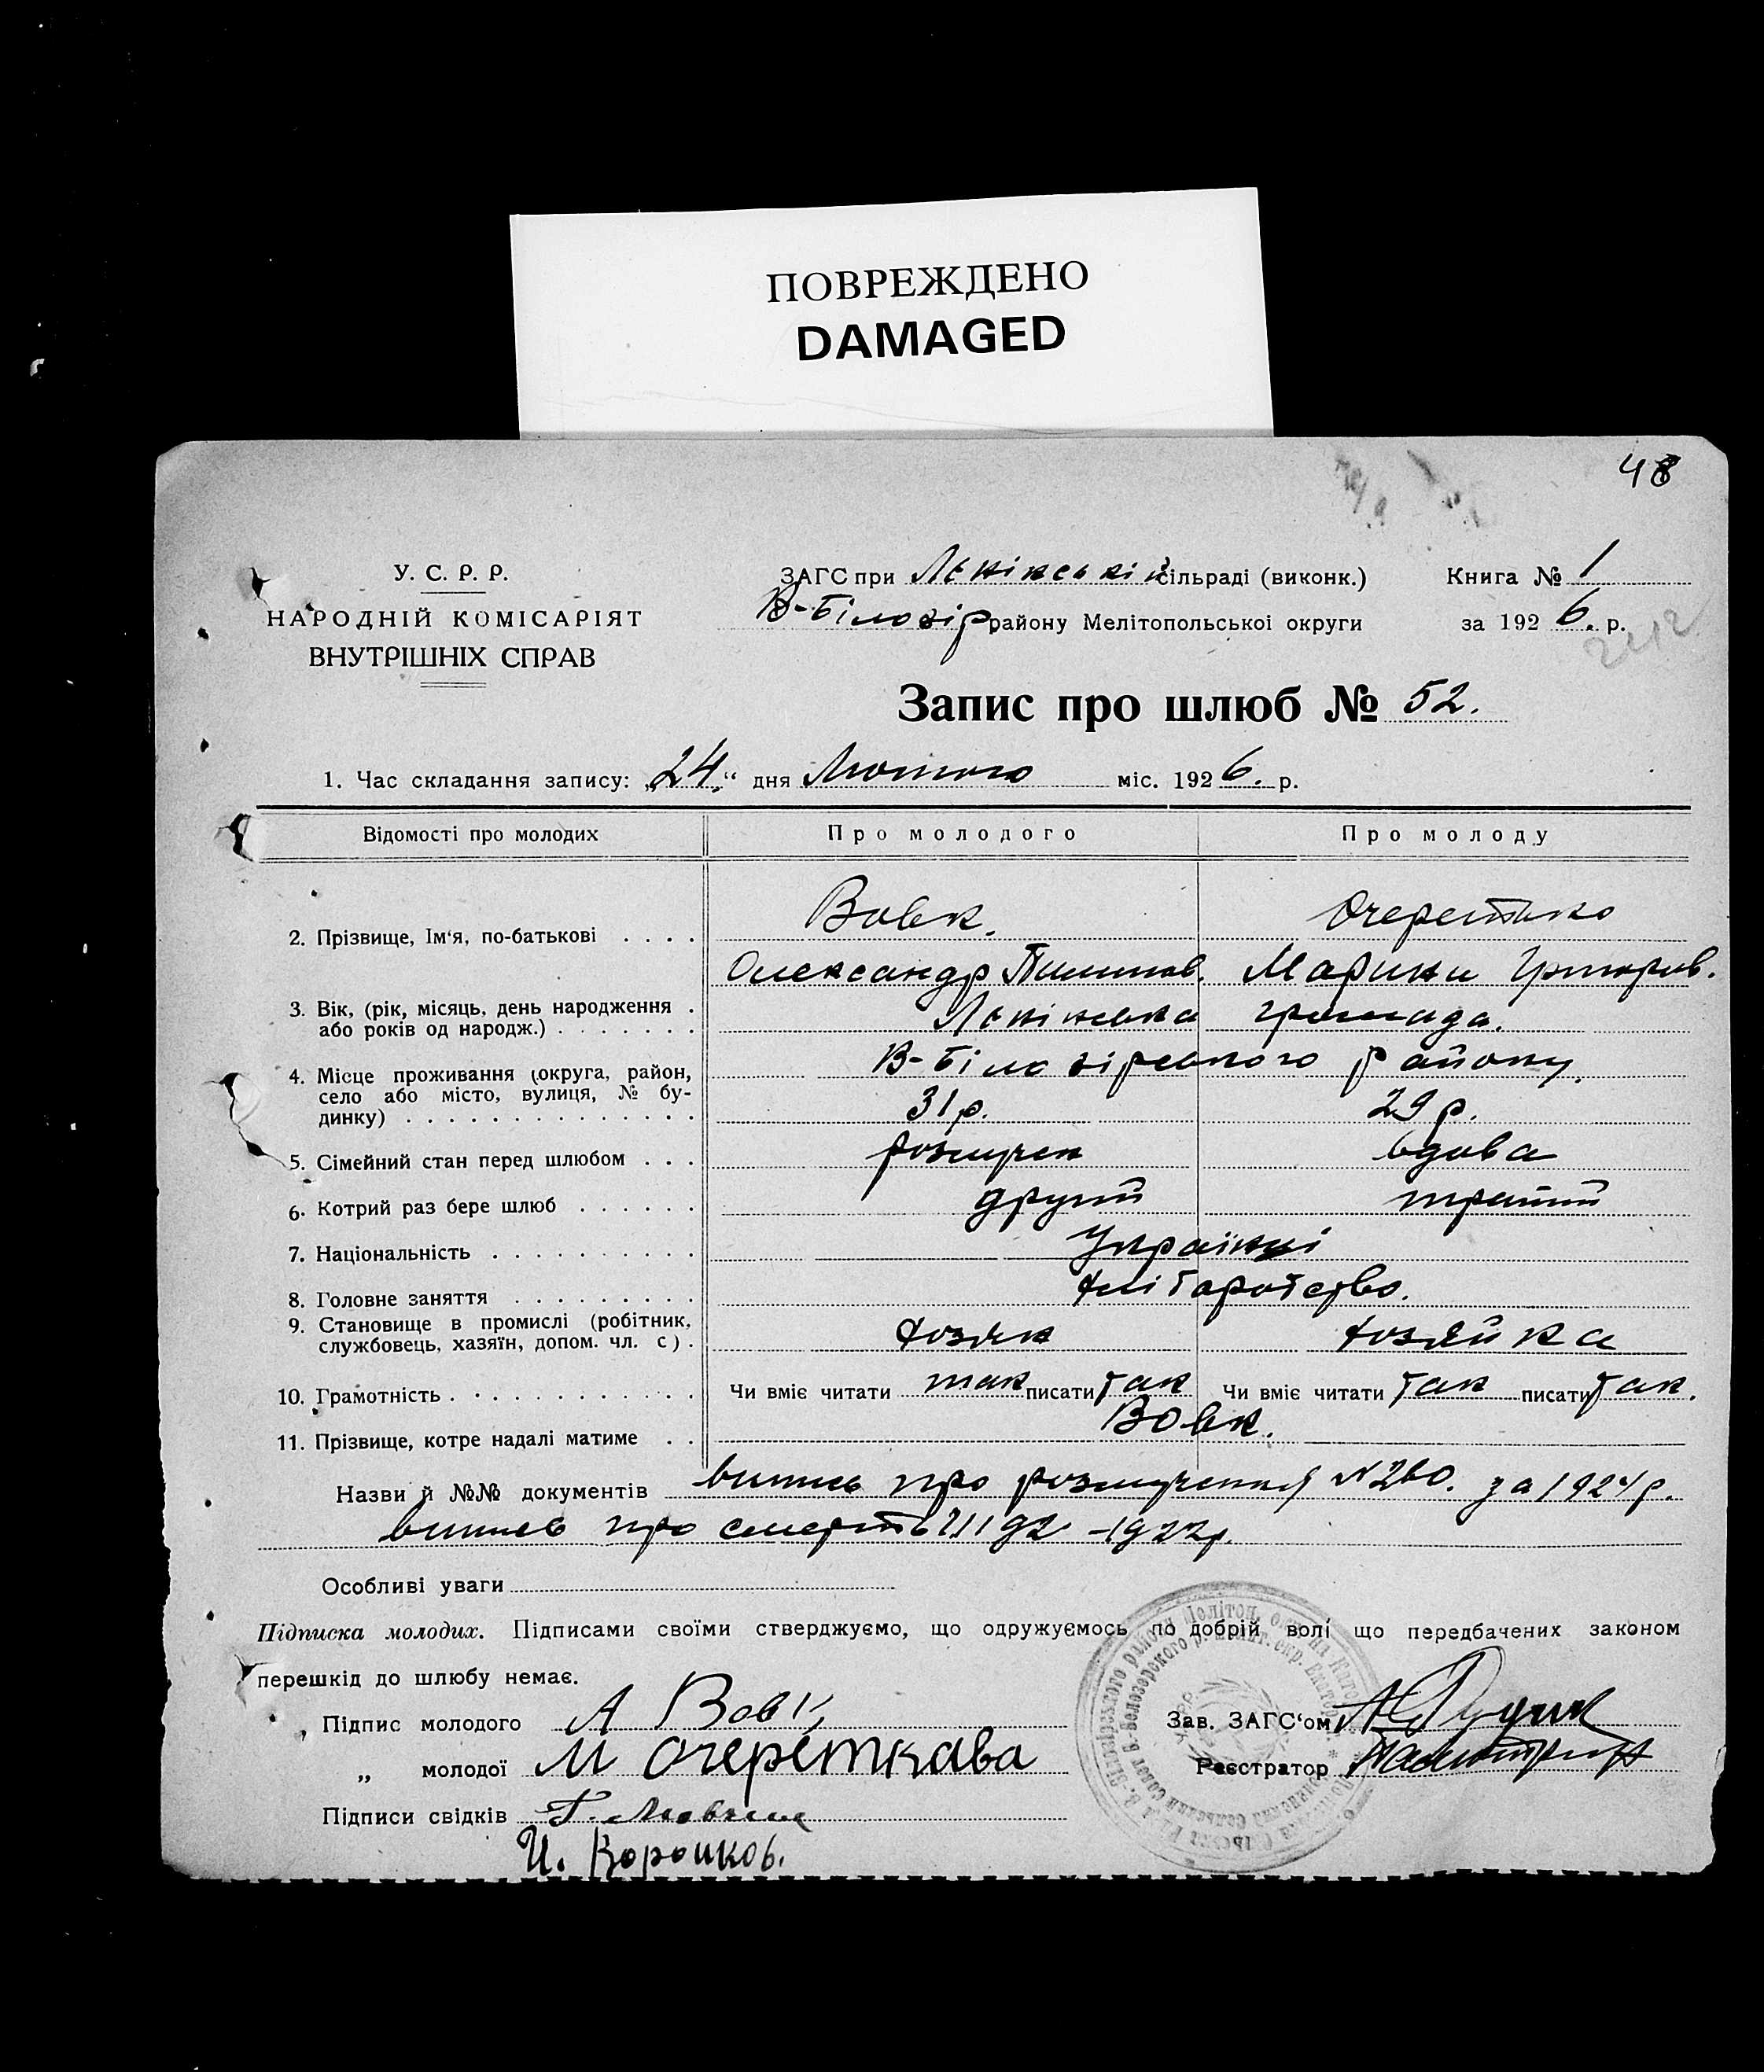 ПОВРЕЖДЕНО
DAMAGED
48
У. С. Р. Р.
НАРОДНІЙ КОМІСАРІЯТ
ВНУТРІШНІХ СПРАВ
ЗАГС при Лєнінській сільраді (виконк.)
В-Білозір. району Мелітопольскої округи
Книга № 1
за 1926. р.
2212
Запис про шлюб № 52.
1. Час складання запису: „24“ дня Лютого міс. 1926. р.
Відомості про молодих Про молодого Про молоду
2. Прізвище, Ім‘я, по-батькові . . . . Вовк. Очеретько
Олександр Пилипов. Марини Григоров.
3. Вік, (рік, місяць, день народження . Лєнінська громада.
або років од народж.) . . . . . . .
4. Місце проживання (округа, район, В-Білозірського району.
село або місто, вулиця, № бу-
динку) . . . . . . . . . . . . . . 31 р. 29 р.
5. Сімейний стан перед шлюбом . . . розлучен вдова
6. Котрий раз бере шлюб . . . . . . другий третий
7. Національність . . . . . . . . . . Українці
8. Головне заняття . . . . . . . . . Хліборобство.
9. Становище в промислі (робітник,
службовець, хазяїн, допом. чл. с) . Хозяін хозяйка
10. Грамотність . . . . . . . . . . . . Чи вміє читати так писати так Чи вміє читати так писати так.
11. Прізвище, котре надалі матиме . . Вовк.
Назви й №№ документів випись про розлучення № 260. за 1924 р.
випись про смерть 1922 р.
Особливі уваги
Підписка молодих. Підписами своїми стверджуємо, що одружуємось по добрій волі що передбачених законом
перешкід до шлюбу немає.
Підпис молодого А Вовк
„ молодої М Очереткава
Підписи свідків Г.
И. Воронков.
Зав. ЗАГС‘ом
Реєстратор